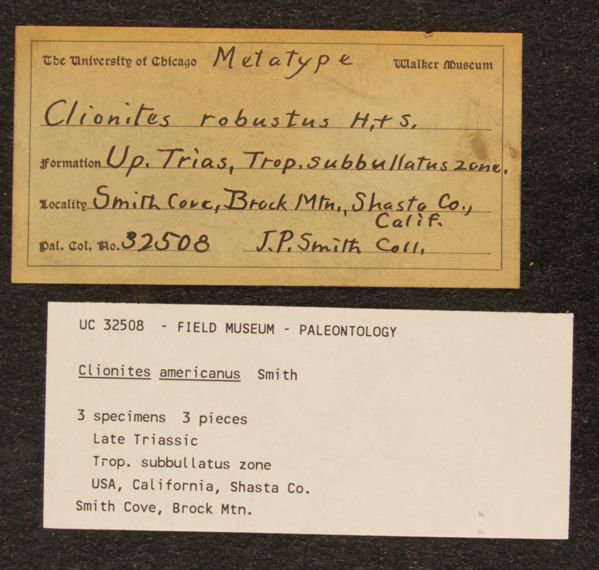 The University of Chicago Metatype Walker Museum
Clionites robustus H.+S.
Formation Up. Trias, Trop. subbullatus zone.
Locality Smith Cove, Brock Mtn., Shasta Co.,
Calif.
Pal. Col. No. 32508 J.P. Smith Coll.
UC 32508 - FIELD MUSEUM - PALEONTOLOGY
Clionites americanus Smith
3 specimens 3 pieces
Late Triassic
Trop. subbullatus zone
USA, California, Shasta Co.
Smith Cove, Brock Mtn.